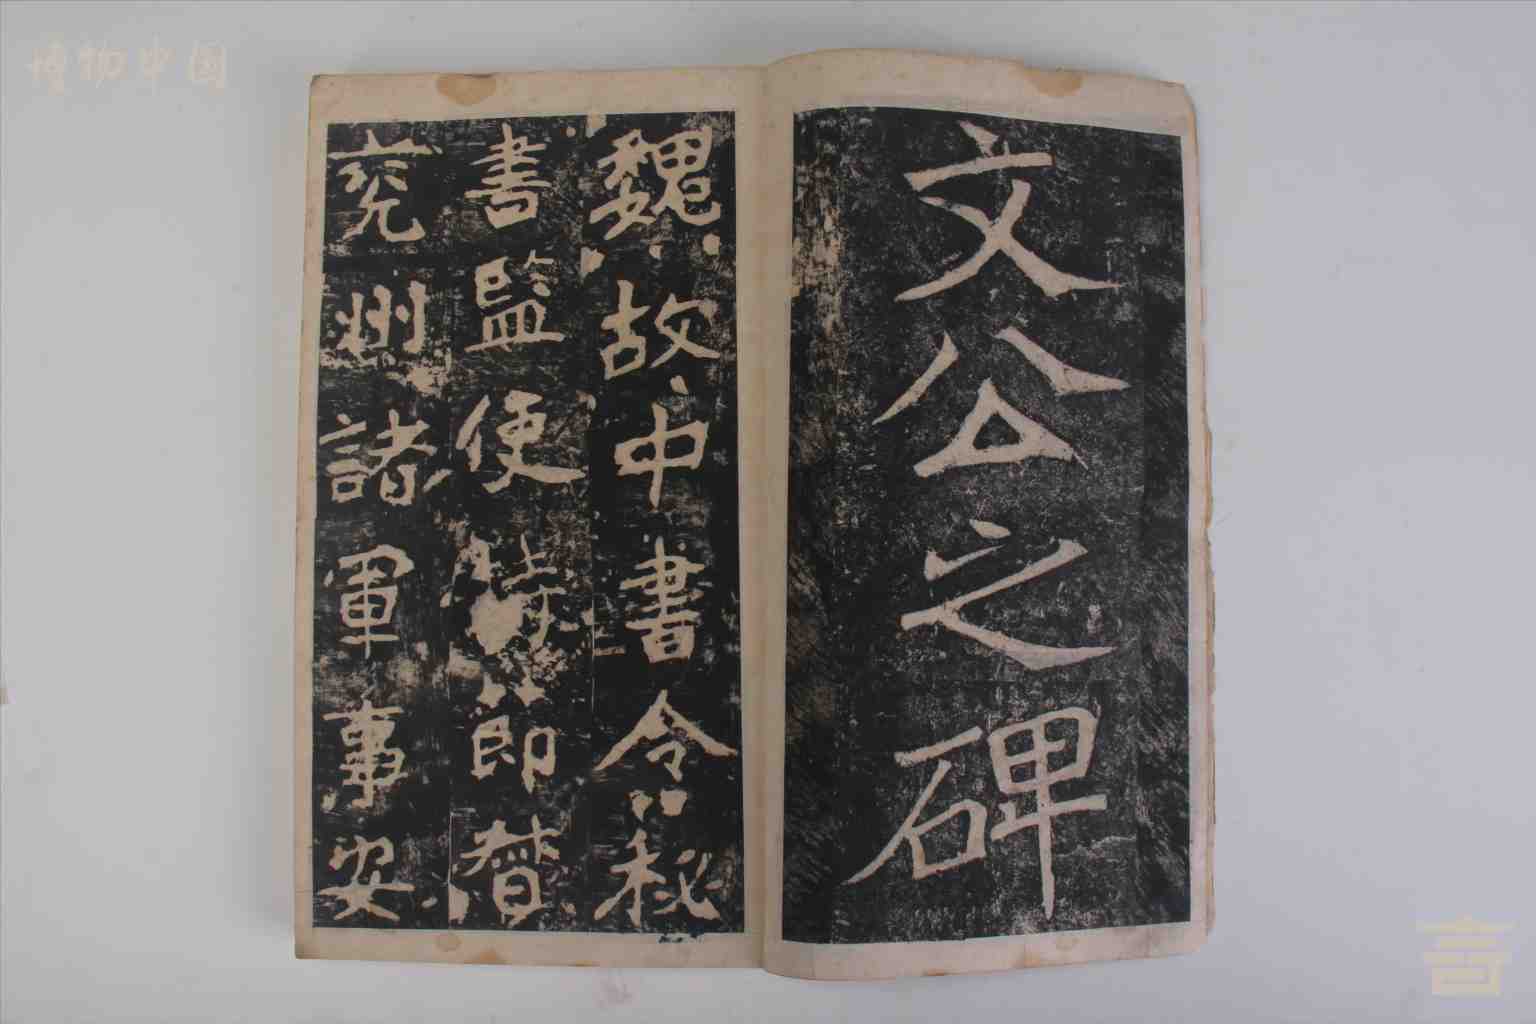 博物中国
文公之碑
魏故中書令秘
書監使持節督
兗州諸軍事安